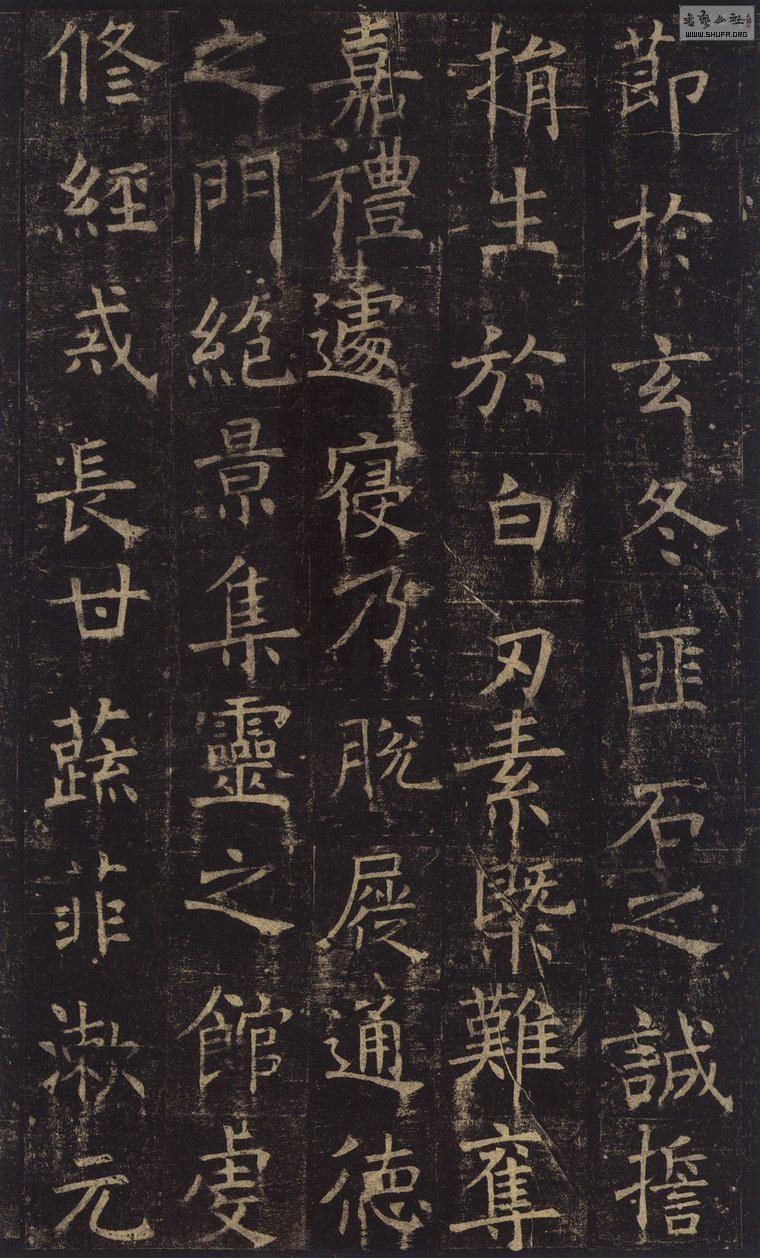 WWW.SHUFA.ORG
節於玄冬匪石之誠誓
捐生於白刃素槩難奪
嘉禮遽寑乃脫屣通德
之門絶景集靈之館虔
修經戒長甘蔬菲漱元